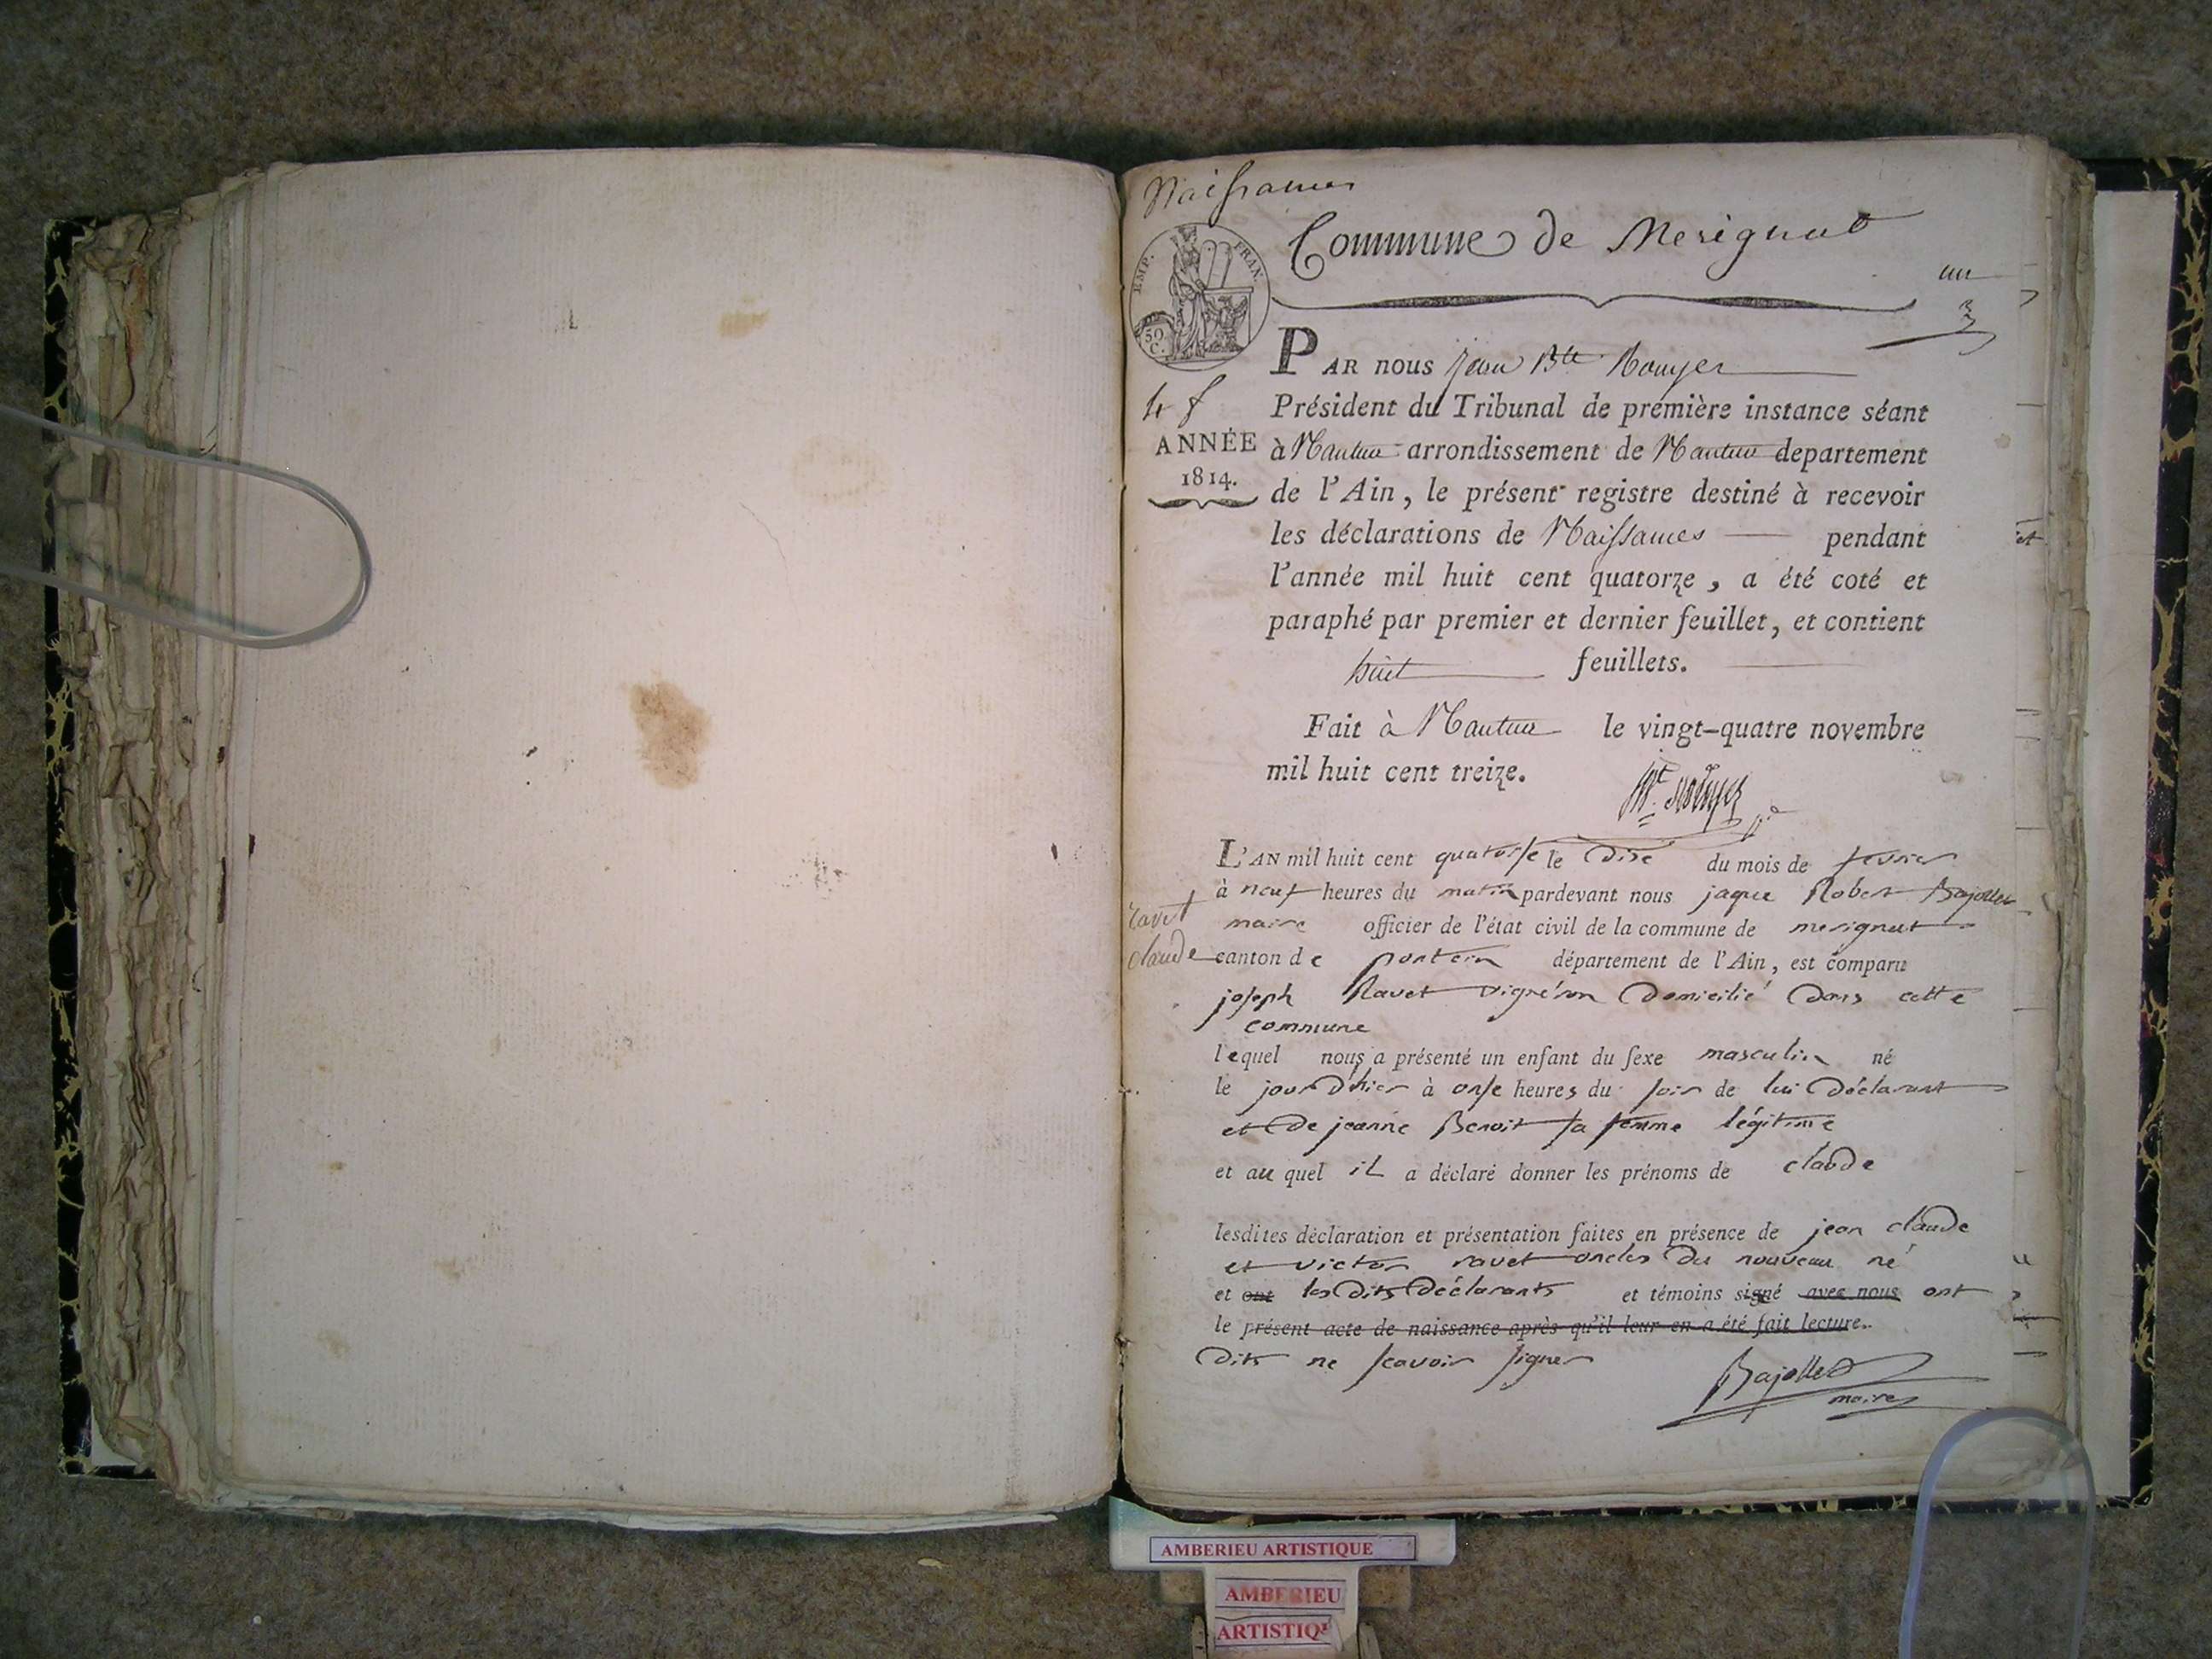 Naissances
Commune de Merignat
un
EMP. FRAN.
50
C.
PAR nous Jean Bte Rouyer
4 f
Président du Tribunal de première instance séant
ANNÉE
1814.
à Nantua arrondissement de Nantua departement
de l'Ain, le présent registre destiné à recevoir
les déclarations de Naissances pendant
l'année mil huit cent quatorze, a été coté et
paraphé par premier et dernier feuillet, et contient
huit feuillets.
Fait à Nantua le vingt-quatre novembre
mil huit cent treize.
L'AN mil huit cent quatorse le dixe du mois de fevrier
à neuf heures du matin pardevant nous jaque Robert Bajollet
ravet
claude
maire officier de l'état civil de la commune de merignat
canton de poncin département de l'Ain, est comparu
joseph Ravet vigneron domicilié dans cette
commune
lequel nous a présenté un enfant du sexe masculin né
le jour d'hier à onse heures du soir de lui déclarant
et de jeanne Benoit sa femme légitime
et au quel il a déclaré donner les prénoms de claude
lesdites déclaration et présentation faites en présence de jean claude
et victor ravet oncles du nouveau né
et ont les dits déclarants et témoins signé avec nous ont
le présent acte de naissance après qu'il leur en a été fait lecture.
dits ne scavoir signer
Bajollet
maire
AMBERIEU ARTISTIQUE
AMBERIEU
ARTISTIQ